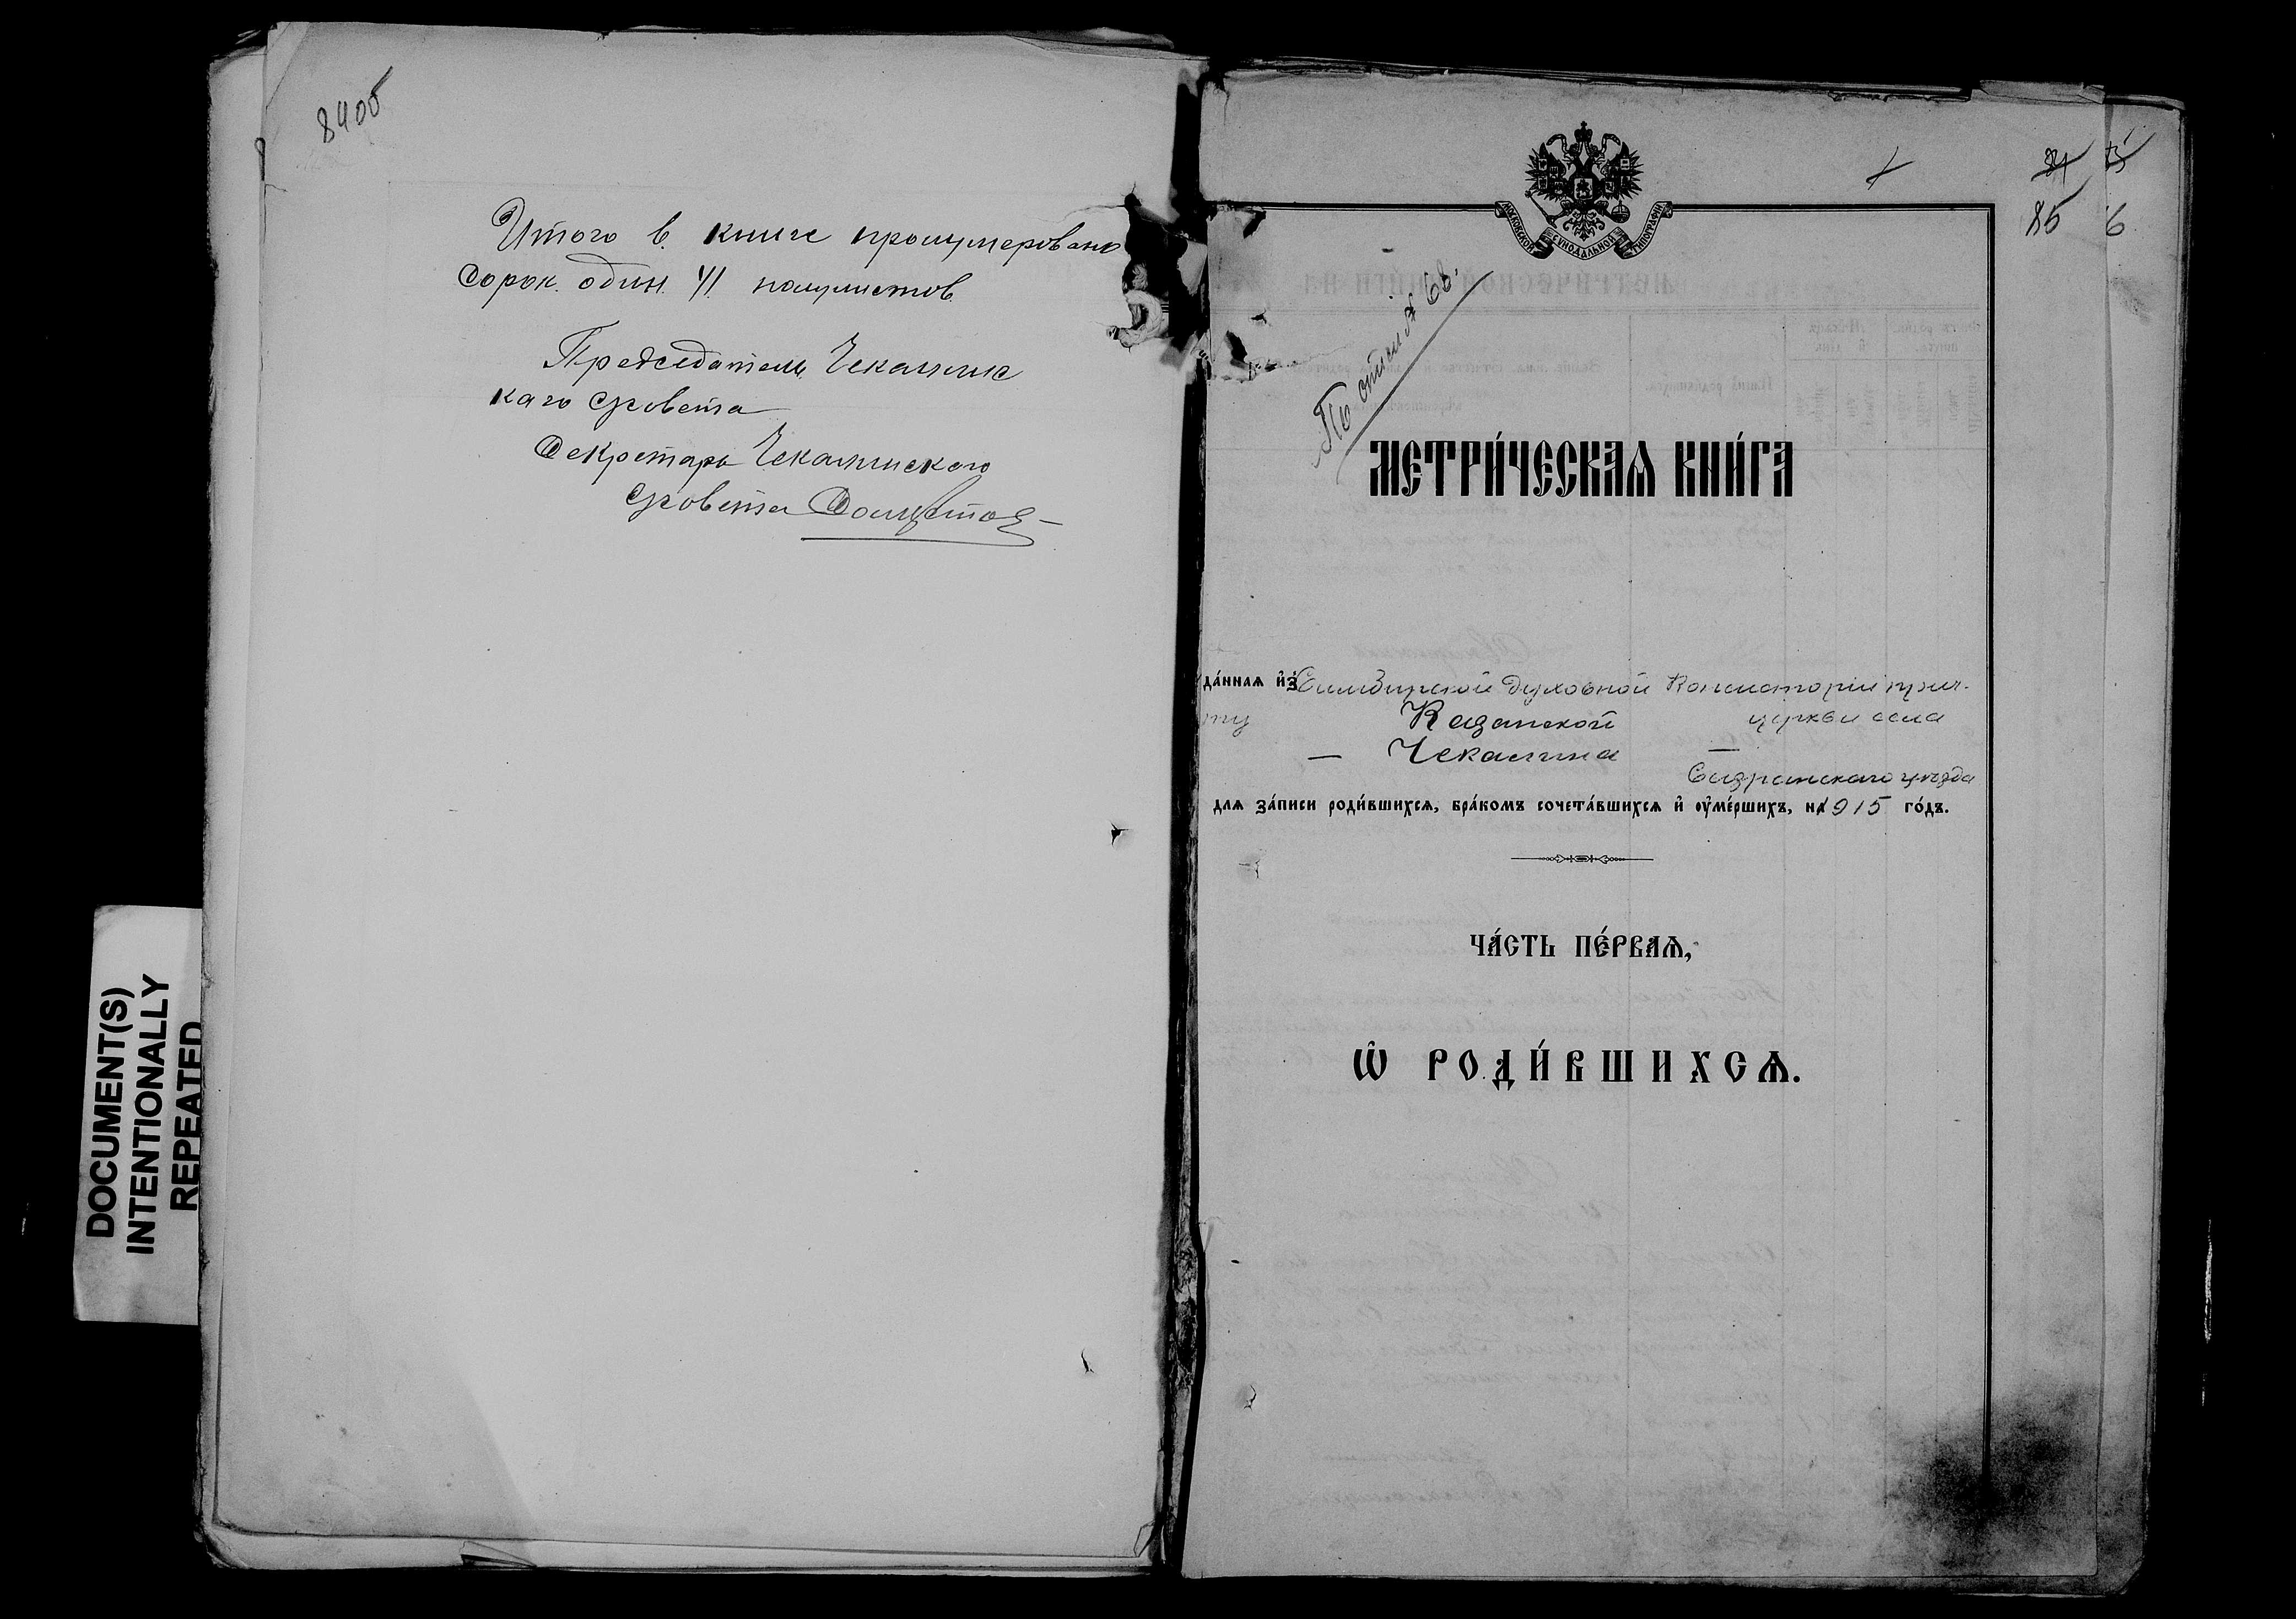 84об
Итого в книге пронумеровано
сорок один 41 полулистов
Председатель Чекалинс
каго Совета
Секретарь Чекалинскаго
Совета
DOCUMENT(S)
INTENTIONALLY
REPEATED
МОСКОВСКОЙ СѴНОДАЛЬНОЙ ТИПОГРАФІИ
85 6
По описи № 68.
МЕТРИ́ЧЕСКАѦ КНИ́ГА
да́ннаѧ и҆з̾ Симбирской Духовной Консисторіи прич-
ту Казанской церкви села
— Чекалина —
Сызранскаго уѣзда
длѧ за́писи роди́вшихсѧ, бра́комъ сочета́вшихсѧ и҆ оу҆ме́ршихъ, на 1915 го́дъ.
ЧА́СТЬ ПЕ́РВАѦ,
Ѡ҆ РОДИ́ВШИХСѦ.